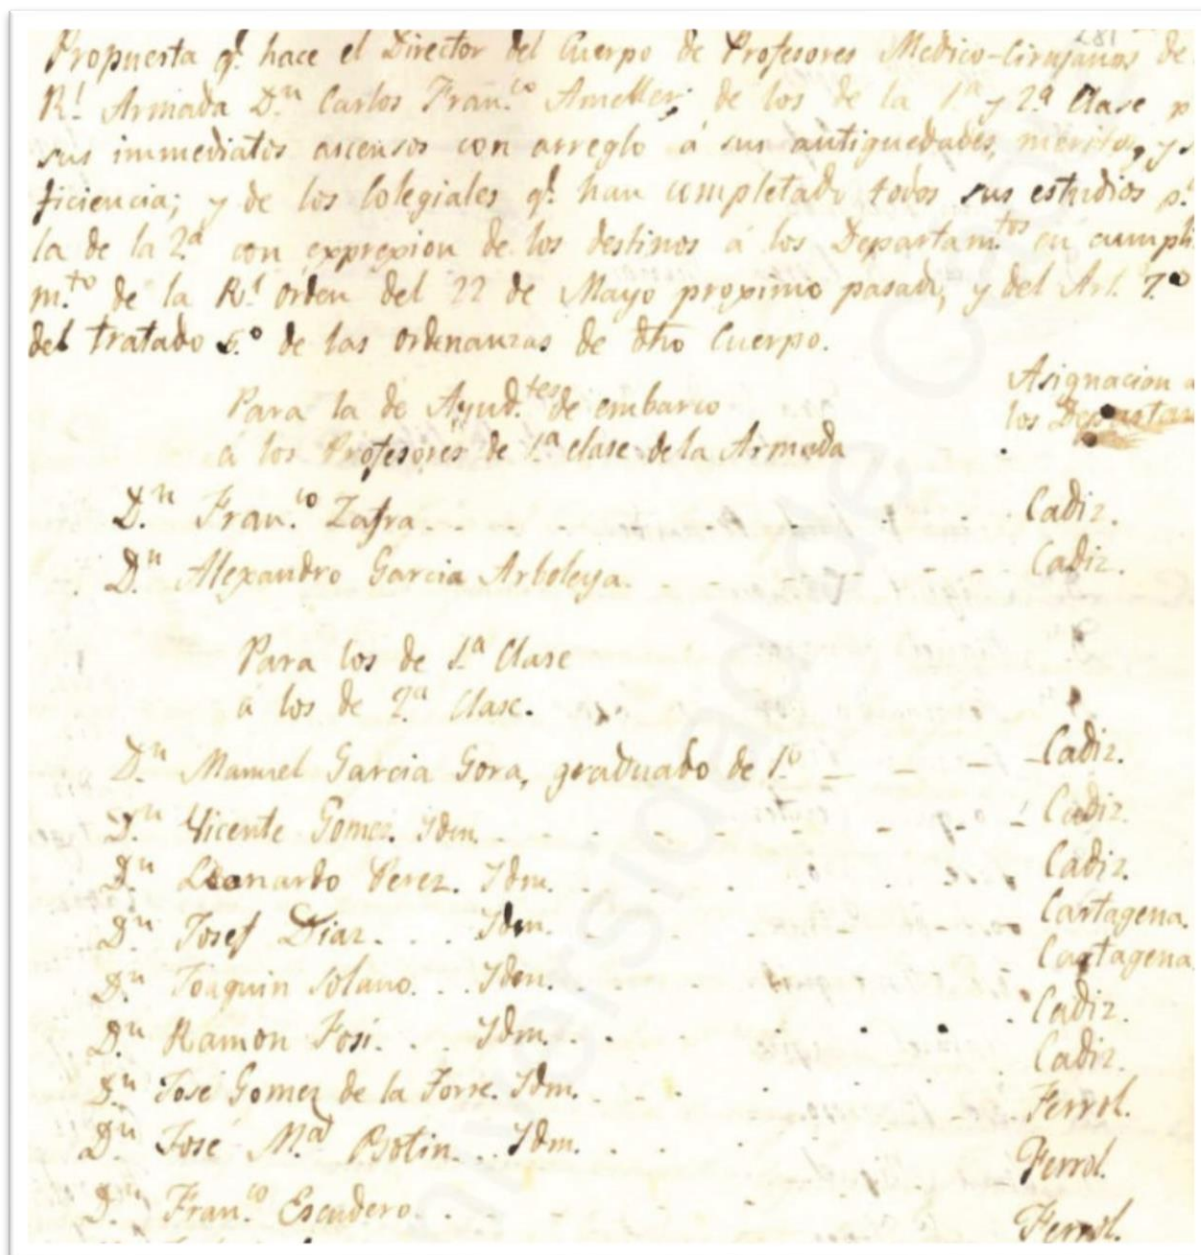 182
Propuesta q.e hace el Director del Cuerpo de Profesores Medico-Cirujanos de
R.l Armada D.n Carlos Fran.co Ameller, de los de la 1.a y 2.a Clase p
sus immediatos ascensos con arreglo á sus antiguedades, meritos, y s
ficiencia; y de los Colegiales q.e han completado todos sus estudios p.a
la de la 2.a con exprexion de los destinos á los Departam.tos en cumpli
m.to de la R.l Orden del 22 de Mayo proximo pasado, y del Art. 7.o
del tratado 5.o de las Ordenanzas de dho Cuerpo.
Asignacion a
los Departam
Para la de Ayud.tes de embarco
á los Profesores de 1.a clase de la Armada
D.n Fran.co Zafra Cadiz.
D.n Alexandro Garcia Arboleya Cadiz.
Para los de 1.a Clase
á los de 2.a Clase.
D.n Manuel Garcia Gora, graduado de 1.o Cadiz.
D.n Vicente Gomez. Idm. Cadiz.
D.n Leonardo Perez. Idm. Cadiz.
D.n Josef Diaz. Idm. Cartagena.
D.n Joaquin Solano. Idm. Cartagena
D.n Ramon Idm. Cadiz.
Cadiz.
D.n José Gomez de la Torre. Idm. Ferrol.
D.n José M.a Botin. Idm. Ferrol.
D.n Fran.co Escudero. Ferrol.
Universidad de